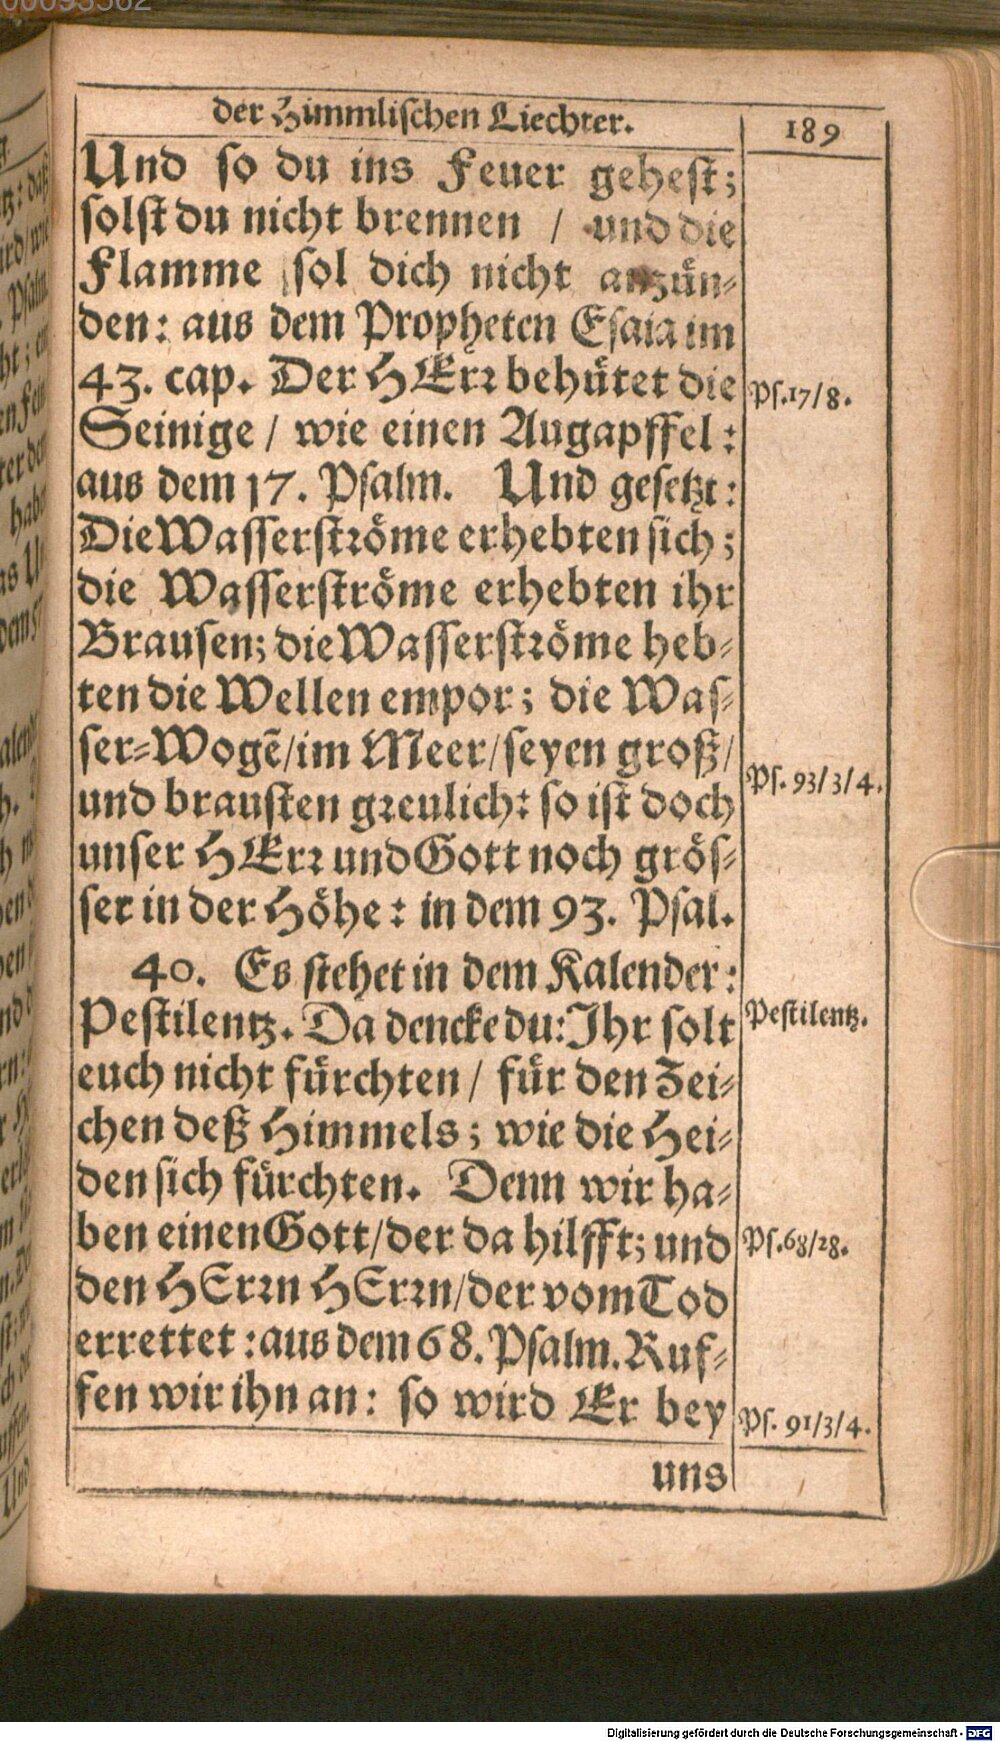 00093562
der Himmlischen Liechter.
189
Und so du ins Feuer gehest;
solst du nicht brennen / und die
Flamme sol dich nicht anzün-
den: aus dem Propheten Esaia im
43. cap. Der HErr behütet die
Ps.17/8.
Seinige / wie einen Augapffel:
aus dem 17. Psalm. Und gesetzt:
Die Wasserströme erhebten sich;
die Wasserströme erhebten ihr
Brausen; die Wasserströme heb-
ten die Wellen empor; die Was-
ser-Wogẽ/im Meer/seyen groß/
Ps. 93/3/4.
und brausten greulich: so ist doch
unser HErr und Gott noch grös-
ser in der Höhe: in dem 93. Psal.
40. Es stehet in dem Kalender:
Pestilentz. Da dencke du: Ihr solt
Pestilentz.
euch nicht fürchten / für den Zei-
chen deß Himmels; wie die Hei-
den sich fürchten. Denn wir ha-
ben einen Gott/der da hilfft; und
Ps.68/28.
den HErrn HErrn/der vom Tod
errettet: aus dem 68. Psalm. Ruf-
fen wir ihn an: so wird Er bey
Ps. 91/3/4.
uns
Digitalisierung gefördert durch die Deutsche Forschungsgemeinschaft - DFG